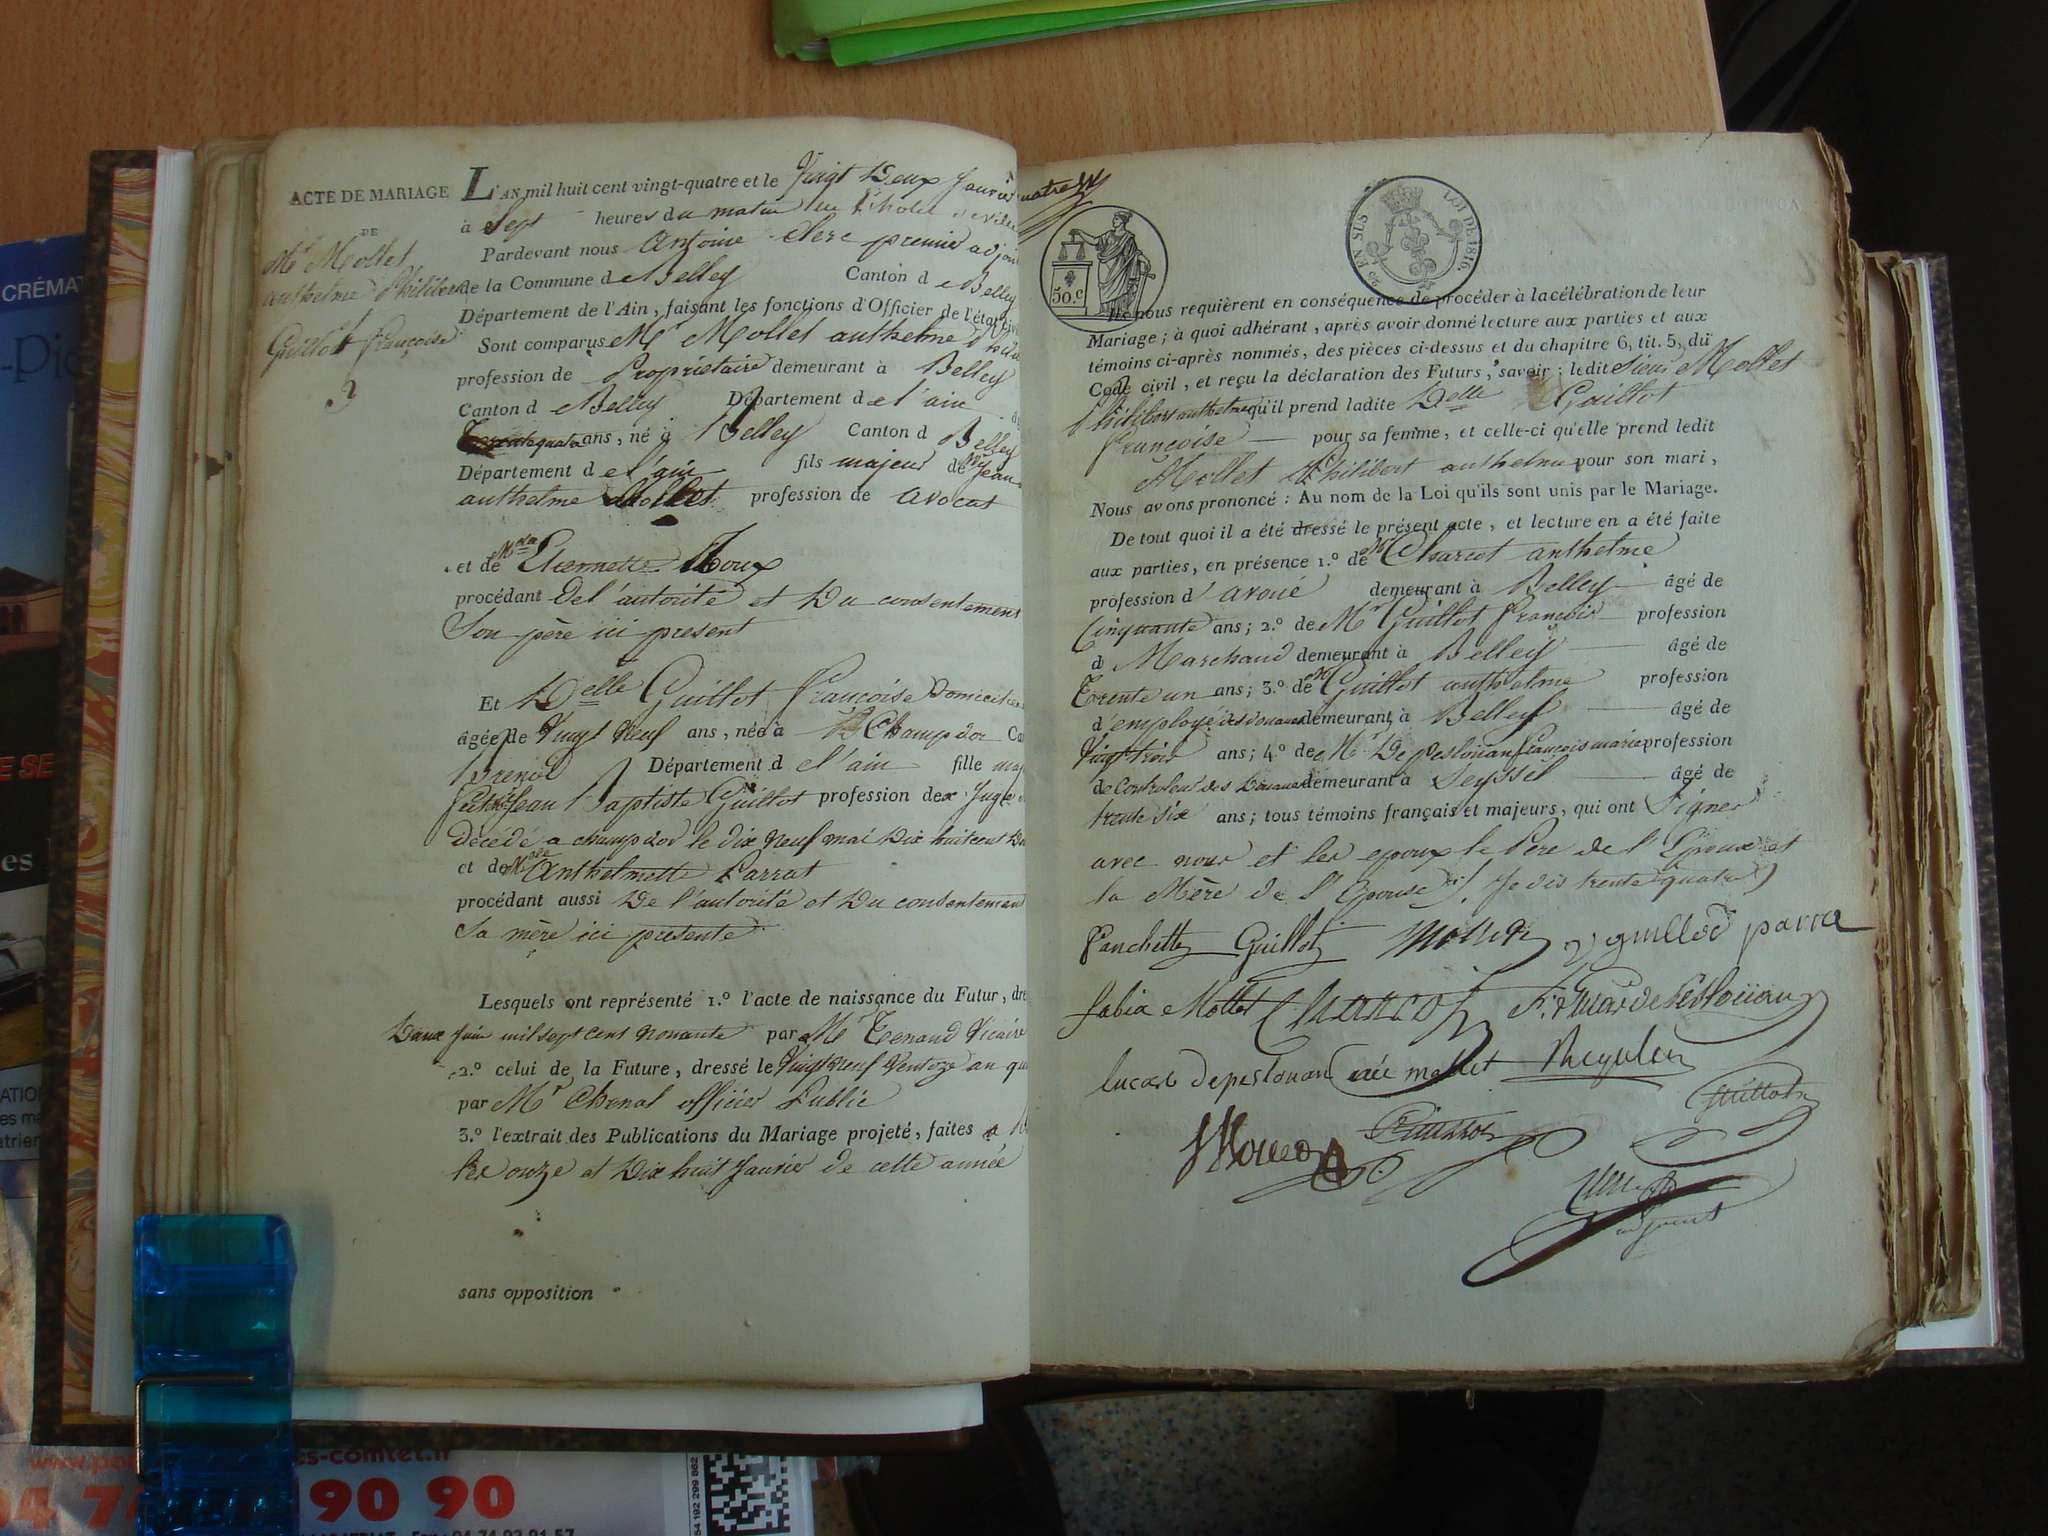 ACTE DE MARIAGE
DE
Mr Mollet
anthelme Philibert
et
Guillot françoise
3
L'AN mil huit cent vingt-quatre et le Vingt Deux Janvier
à Sept heures du matin en l'hotel de ville
Pardevant nous Antoine Clerc premier adjoint
de la Commune de Belley Canton de Belley
Département de l'Ain, faisant les fonctions d'Officier de l'état civil
Sont comparus Mr Mollet anthelme Phili
profession de Propriétaire demeurant à Belley
Canton de Belley Département de l'ain
Trente quatre ans, né à Belley Canton d Belley
Département de l'ain fils majeur de Mr Jean
anthelme Mollet profession de avocat
et de Mde Etiennette Roux
procédant De l'autorité et Du consentement
Son père ici present
Et Delle Guillot françoise Domiciliée
âgée de Vingt Neuf ans, née à Champdor Ca
Brenod Département de l'ain fille maj
feu Jean Baptiste Guillot profession de Juge
Décédé a champdor le dix Neuf mai Dix huit cent
et de Mde Anthelmette Parrat
procédant aussi De l'autorité et Du consentement
Sa mère ici presente
Lesquels ont représenté 1.º l'acte de naissance du Futur, dre
Deux Juin mil sept cent nonante par Mr Tenand Vicaire
2.º celui de la Future, dressé le Vingt Neuf Ventoze an qu
par Mr Chenal officier Public
3.º l'extrait des Publications du Mariage projeté, faites a
les onze et Dix huit Janvier de cette année
sans opposition
50.c
EN SUS
LOI DE 1816.
Ils nous requièrent en conséquence de procéder à la célébration de leur
Mariage; à quoi adhérant, après avoir donné lecture aux parties et aux
témoins ci-après nommés, des pièces ci-dessus et du chapitre 6, tit. 5, du
Code civil, et reçu la déclaration des Futurs, savoir: ledit Sieur Mollet
Philibert anthelme qu'il prend ladite Delle Guillot
françoise pour sa femme, et celle-ci qu'elle prend ledit
Mollet Philibert anthelme pour son mari,
Nous avons prononcé: Au nom de la Loi qu'ils sont unis par le Mariage.
De tout quoi il a été dressé le présent acte, et lecture en a été faite
aux parties, en présence 1.º de Mr Charcot anthelme
profession d'avoué demeurant à Belley âgé de
Cinquante ans; 2.º de Mr Guillot françois profession
d Marchand demeurant à Belley âgé de
Trente un ans; 3.º de Mr Guillot anthelme profession
d'employé des Douanes demeurant à Belley âgé de
Vingt trois ans; 4.º de Mr De peslouan françois marie profession
de Controleur des Douanes demeurant à Seyssel âgé de
trente six ans; tous témoins français et majeurs, qui ont Signer
avec nous et les epoux le Père de l'Epoux et
la Mère de l'Epouse. Je dis trente quatre
fanchette Guillot Mollet guillod parra
fabia Mollet Charcot
lucas depeslouan née mollet
Guillot
adjoint
CRÉMAT
90 90